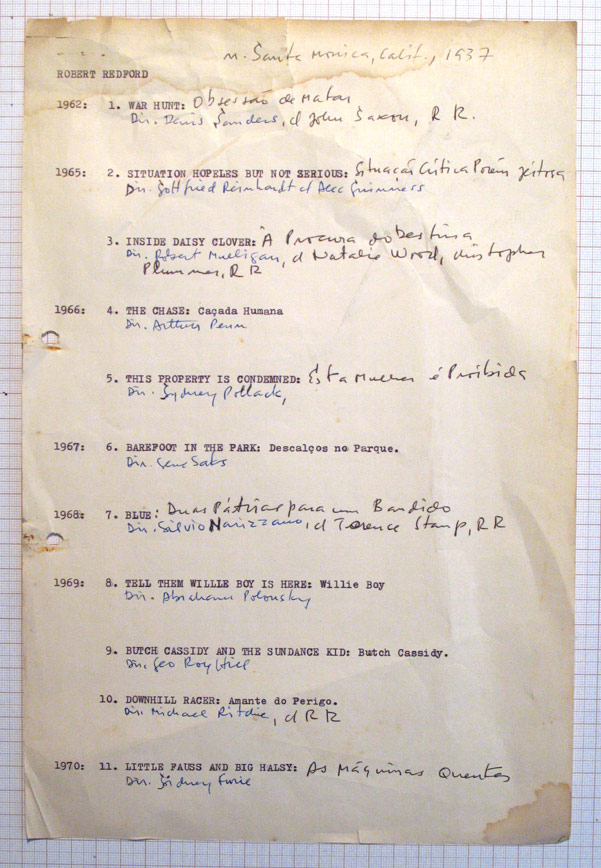 n. Santa Monica, Calif., 1937
ROBERT REDFORD
1962: 1. WAR HUNT: Obsessão de Matar
Dir. Denis Sanders, c/ John Saxon, R R.
1965: 2. SITUATION HOPELES BUT NOT SERIOUS: Situação Crítica Porém Jeitosa
Dir. Gottfried Reinhardt c/ Alec Guinness
3. INSIDE DAISY CLOVER: À Procura do Destino
Dir. Robert Mulligan, c/ Natalie Wood, Christopher
Plummer, R R
1966: 4. THE CHASE: Caçada Humana
Dir. Arthur Penn
5. THIS PROPERTY IS CONDEMNED: Esta Mulher é Proibida
Dir. Sydney Pollack,
1967: 6. BAREFOOT IN THE PARK: Descalços no Parque.
Dir. Gene Saks
1968: 7. BLUE: Duas Pátrias para um Bandido
Dir. Silvio Narizzano, c/ Terence Stamp, R R
1969: 8. TELL THEM WILLLE BOY IS HERE: Willie Boy
Dir. Abraham Polonsky
9. BUTCH CASSIDY AND THE SUNDANCE KID: Butch Cassidy.
Dir. Geo Roy Hill
10. DOWNHILL RACER: Amante do Perigo.
Dir. Michael Ritchie, c/ R R
1970: 11. LITTLE FAUSS AND BIG HALSY: As Máquinas Quentes
Dir. Sidney Furie